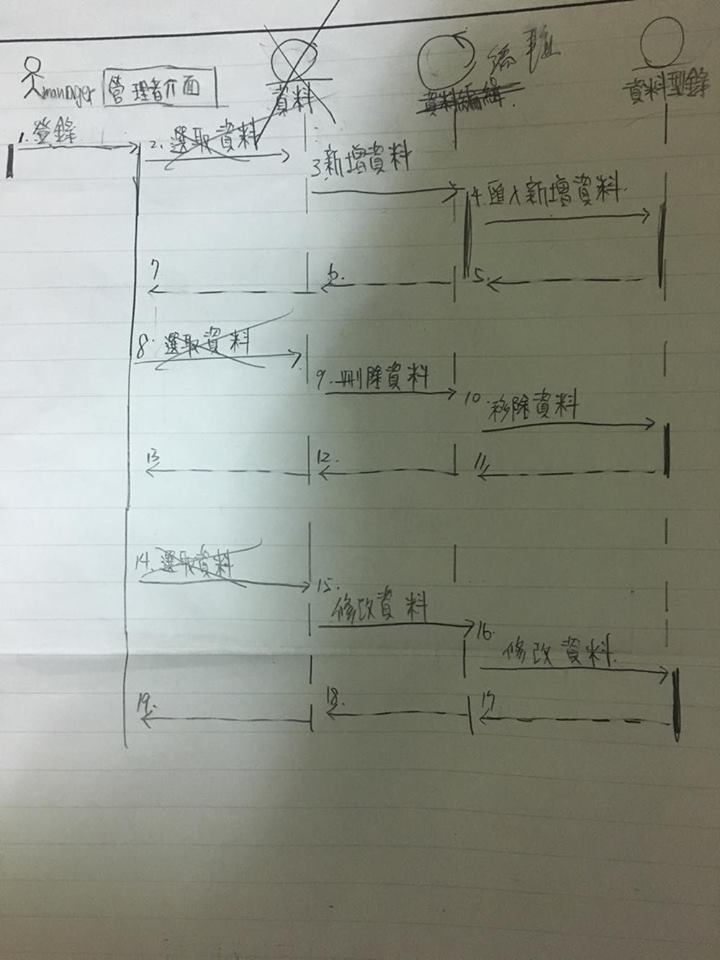 manager 管理者介面 資料 資料編輯 資料型錄
1. 登錄
2. 選取資料
3. 新增資料
4. 匯入新增資料.
7 6. 5.
8. 選取資料
9. 刪除資料
10. 移除資料
13 12. 11.
14. 選取資料
15. 修改資料
16. 修改資料.
19. 18. 17